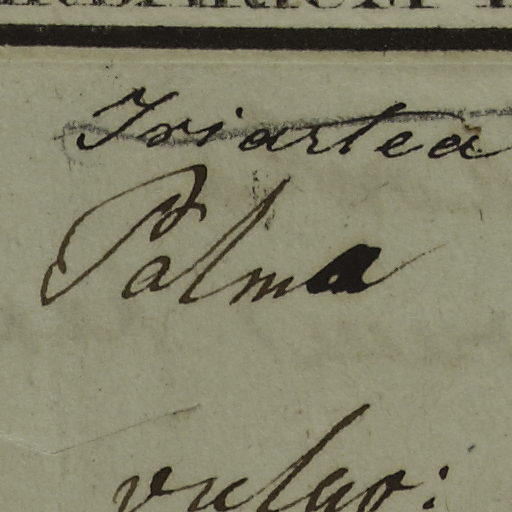 Iriartea
Palma
vulgo: